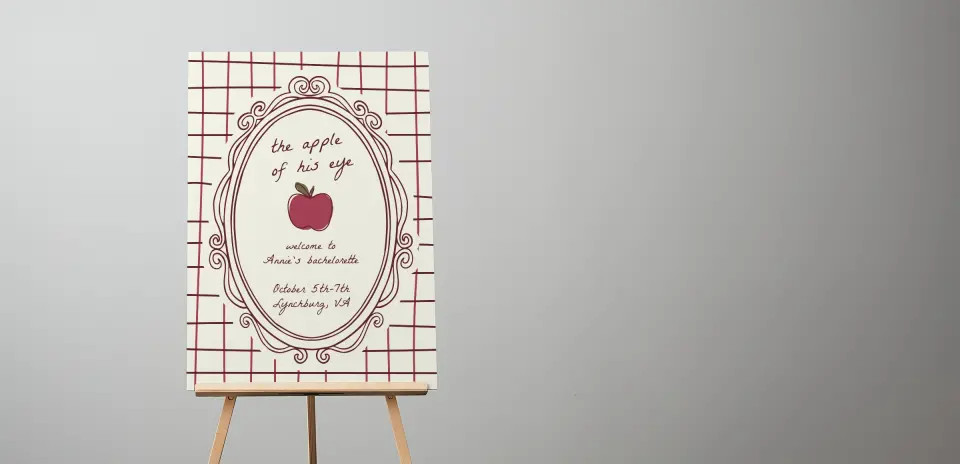 the apple
of his eye
welcome to
Annie's bachelorette
October 5th-7th
Lynchburg, VA